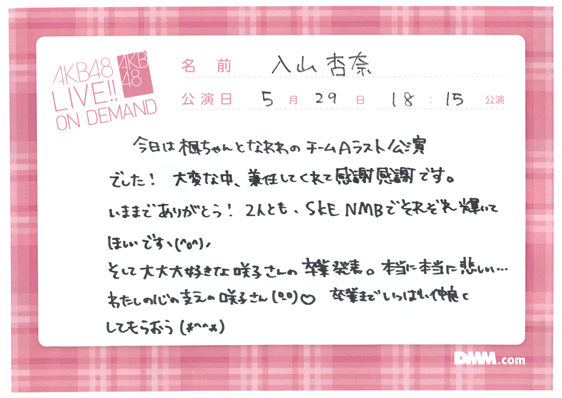 AKB48
LIVE!!
ON DEMAND
AKB
48
名前 入山杏奈
公演日 5月29日 18:15公演
今日は梅ちゃんとなれれのチームAラスト公演
でした! 大変な中、兼任してくれて感謝感謝です。
いままでありがとう! 2人とも、SKE NMBでそれぞれ輝いて
ほしいですヽ(^o^)ノ
そして大大大好きな咲子さんの卒業発表。本当に本当に悲しい…
わたしの心の支えの咲子さん(°○°)♡ 卒業までいっぱい仲良く
してもらおう(*^^*)
DMM.com